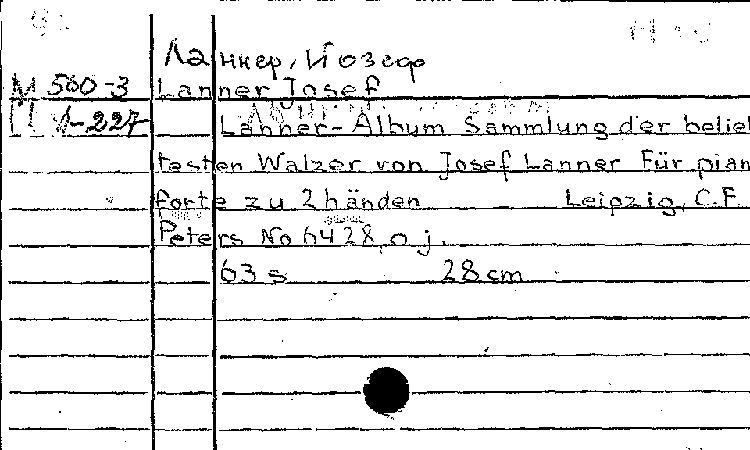 Ланнер, Йозеф
М 560-3 Lanner Josef
Lanner-Album Sammlung der belieb
testen Walzer von Josef Lanner Für pian
forte zu 2 händen Leipzig, C.F.
Peters No 6428, o j.
63 s 28 cm